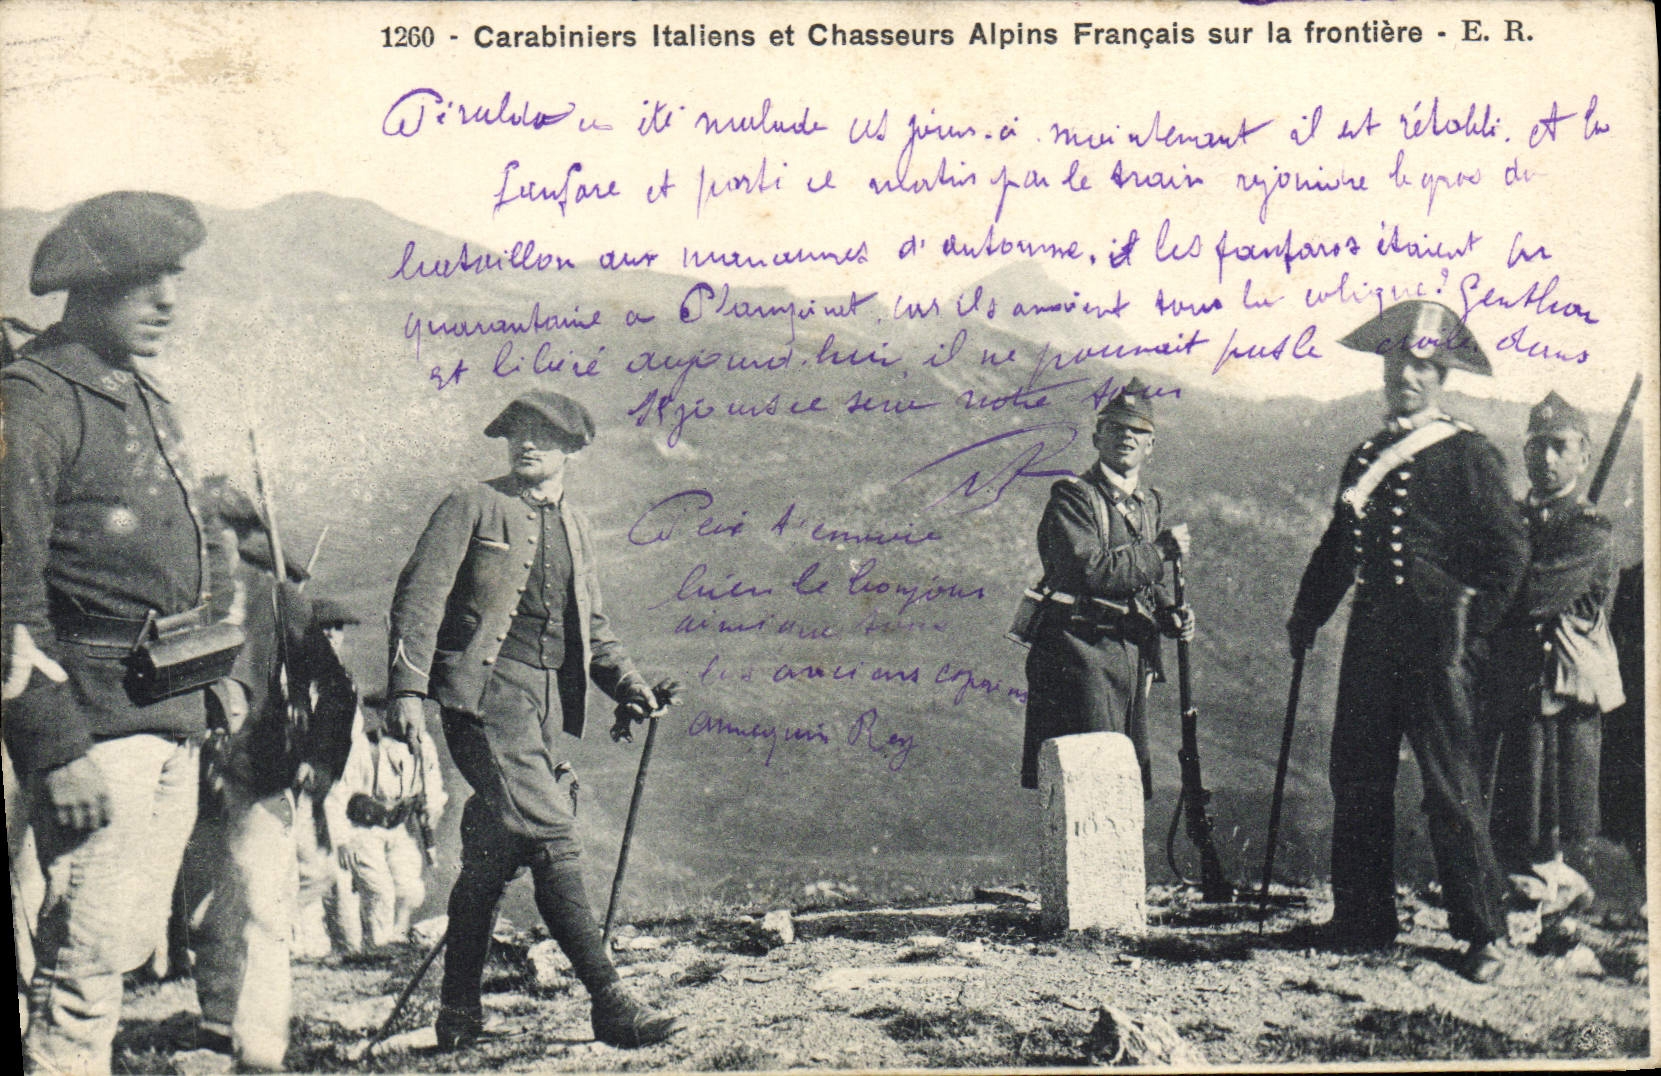 1260 - Carabiniers Italiens et Chasseurs Alpins Français sur la frontière - E. R.
a été malade ces jours-ci maintenant il est rétabli. et la
fanfare est parti ce matin par le train rejoindre le gros du
bataillon aux d'automne, les fanfares étaient en
quarantaine a car ils avaient tous la colique!
est libéré aujourd.hui, il ne pouvait pas le dans
jours ce sera notre tour
t'envoie
bien le bonjour
ainsi que tous
les anciens copains
Rey
30